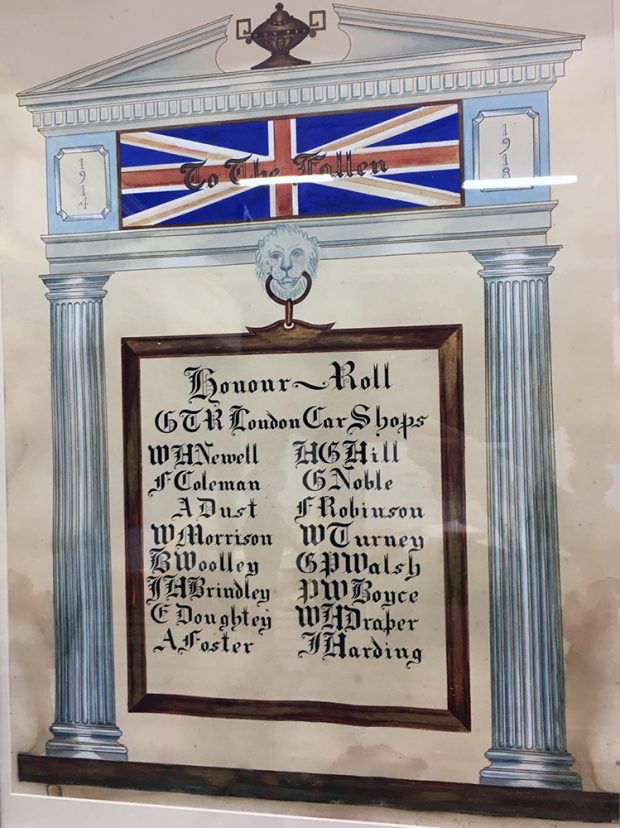 To The Fallen
1914
1918
Honour ~ Roll
GTR London Car Shops
W H Newell
F Coleman
A Dust
W Morrison
B Woolley
J H Brindley
E Doughtey
A Foster
H G Hill
G Noble
F Robinson
W Turney
G P Walsh
P W Boyce
W H Draper
J Harding